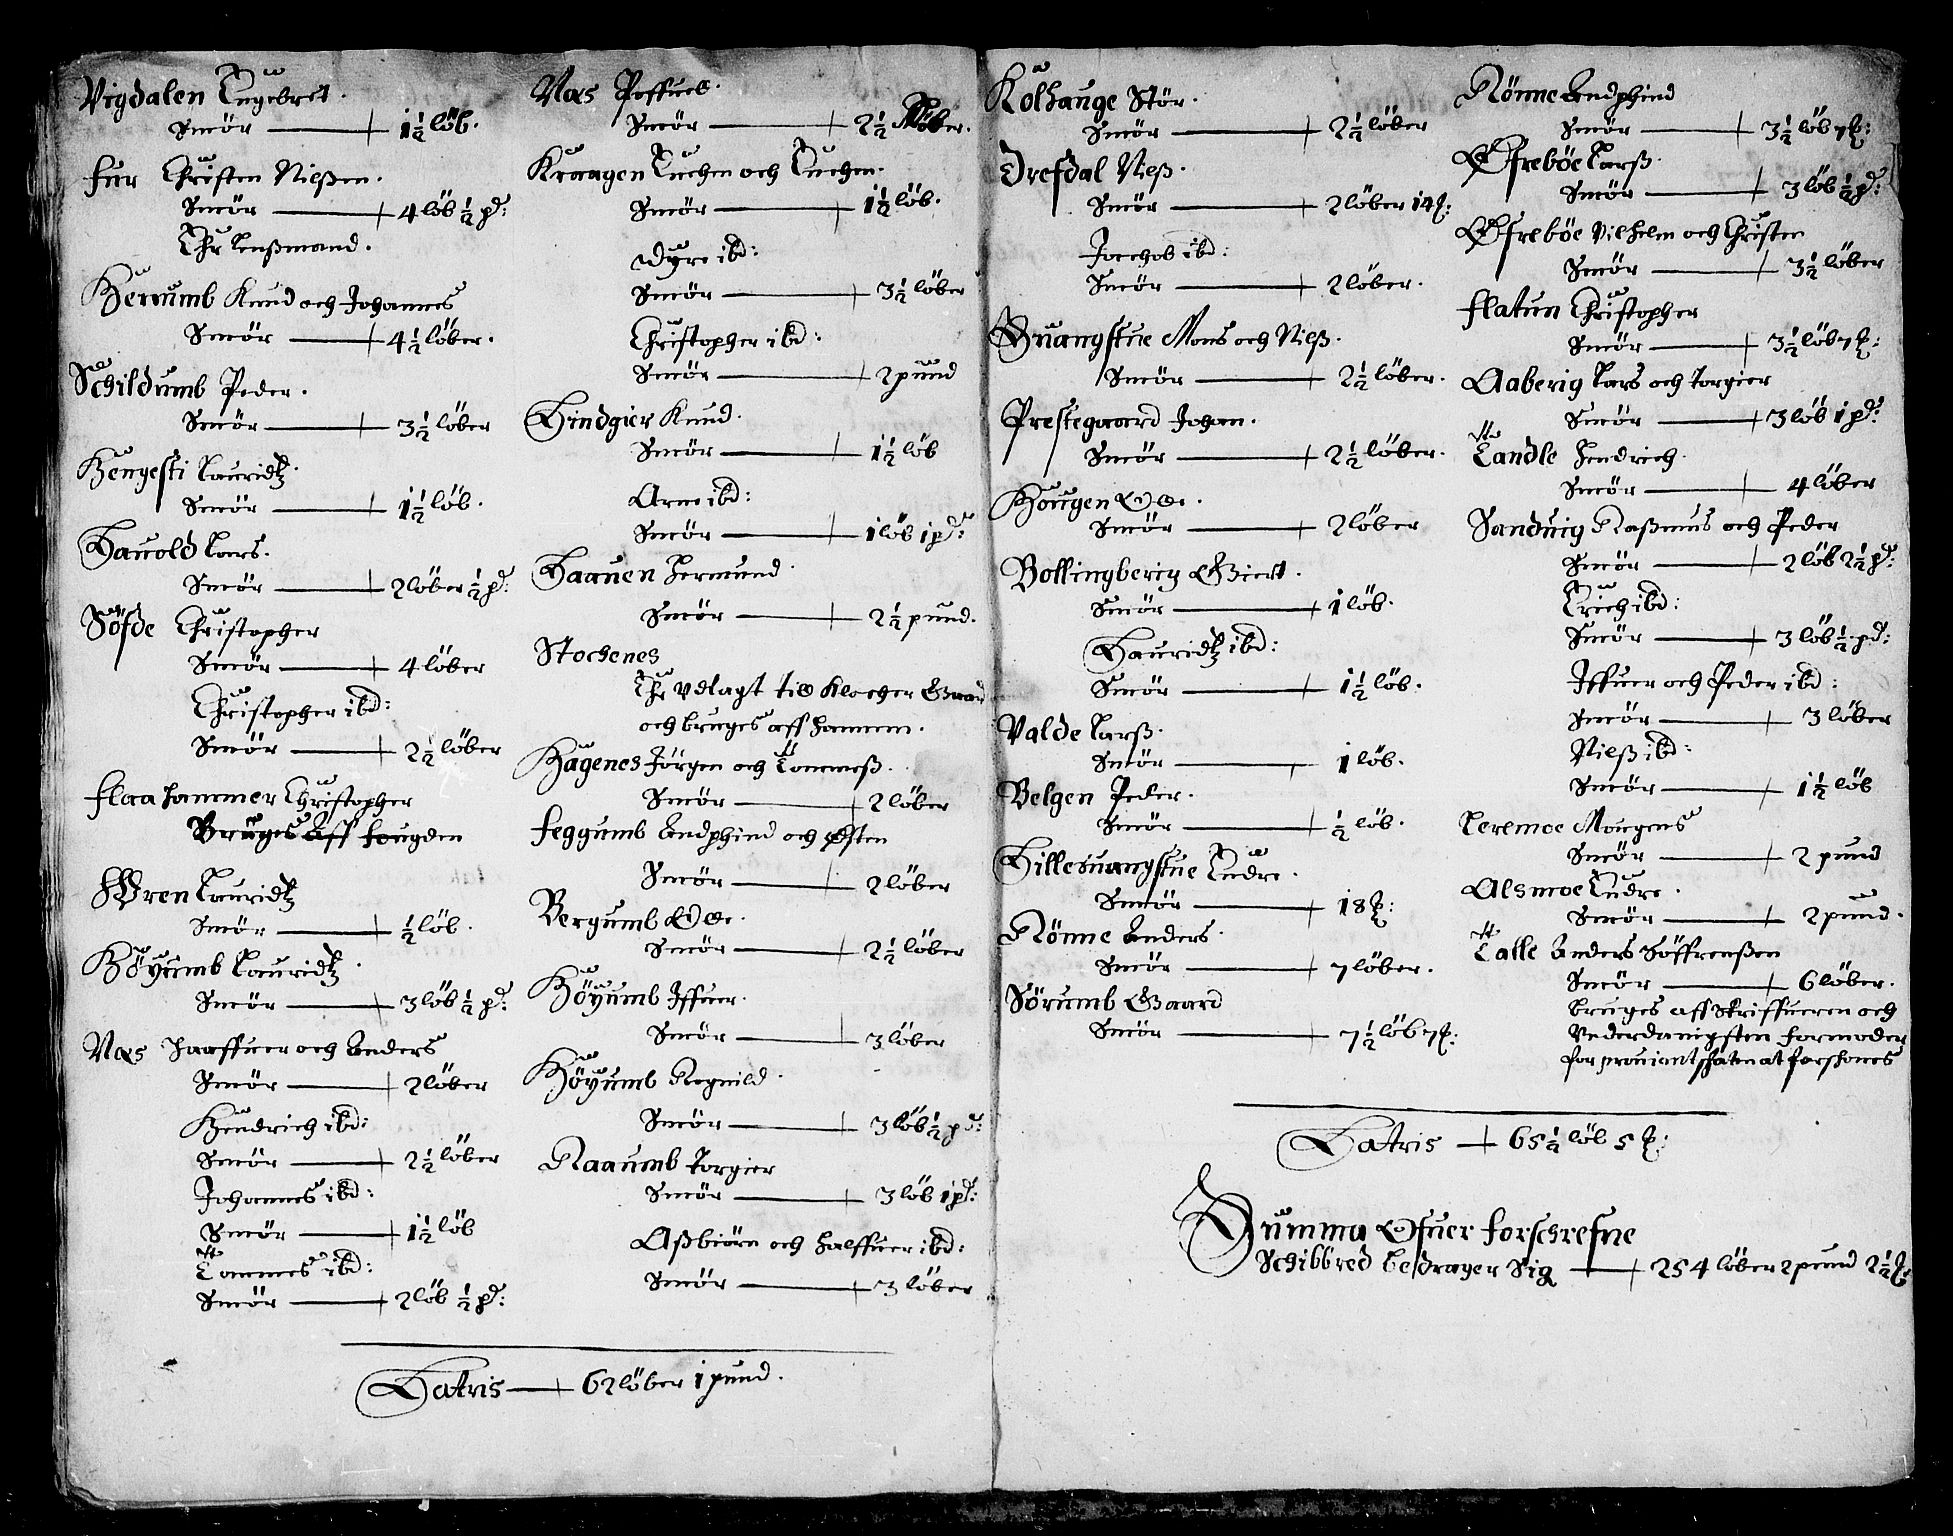 Vigdalen Engebret.
Smör — 1½ löb.
Fur Christen Nilßen.
Smör — 4 löb ½ pd:
Ehr Lenßmand.
Herrumb Knud och Johannes
Smör — 4½ löber.
Schildumb Peder.
Smör — 3½ löber
Hengesti Lauridtz.
Smör — 1½ löb.
Hauold Lars.
Smör — 2 löber ½ pd:
Söfde Christopher
Smör — 4 löber
Christopher ibd:
Smör — 2½ löber
Flaahammer Christopher
Bruges Aff fougden
Wren Lauridtz
Smör — ½ löb.
Höyumb Lauridtz.
Smör — 3 löb ½ pd:
Næs Haaffuer och Anders
Smör — 2 löber
Hendrich ibd:
Smör — 2½ löber
Johannes ibd:
Smör — 1½ löb
Tommes ibd:
Smör — 2 löb ½ pd:
Næs Poffuel.
Smör — 2½ löber.
Kraagen Euchen och Euchen.
Smör — 1½ löb.
Dyre ibd:
Smör — 3½ löber
Christopher ibd:
Smör — 2 pund
Lindgier Knud.
Smör — 1½ löb
Arne ibd:
Smör — 1 löb 1 pd:
Haauen Hermund.
Smör — 2½ pund.
Stochenes
Ehr vdlagt till Klocher Gaard
och bruges aff hannem.
Hagenes Jörgen och Tommeß.
Smör — 2 löber
Feggumb Endphind och Østen
Smör — 2 löber
Bergumb Olle.
Smör — 2½ löber
Höyumb Iffuer.
Smör — 3 löber
Höyumb Regnild.
Smör — 3 löb ½ pd:
Naaumb Torgier
Smör — 3 löb 1 pd:
Aßbiörn och Halffuer ibd:
Smör — 3 löber
Latris — 62 löber 1 pund.
Kolhauge Stör.
Smör — 2½ löber
Drefdal Nilß.
Smör — 2 löber 14 ℔:
Jacob ibd:
Smör — 2 löber.
Quangstue Mons och Nilß.
Smör — 2½ löber.
Prestegaard Johan.
Smör — 2½ löber.
Hougen Olle.
Smör — 2 löber
Bollingberig Giert.
Smör — 1 löb.
Lauridtz ibd:
Smör — 1½ löb.
Valde Larß.
Smör — 1 löb.
Belgen Peder.
Smör — ½ löb.
Lillesuangstue Endre.
Smör — 18 ℔:
Rönne Anders.
Smör — 7 löber.
Sörumb Gaard
Smör — 7½ löb 7 ℔:
Rönne Endphind
Smör — 3½ löb 7 ℔:
Øfreböe Larß.
Smör — 3 löb ½ pd:
Øfreböe Vilhelm och Christen
Smör — 3½ löber
Flatun Christopher
Smör — 3½ löb 7 ℔:
Aaberig Lars och Torgier
Smör — 3 löb 1 pd:
Tandle Hendrich.
Smör — 4 löber
Sanduig Raßmus och Peder
Smör — 2 löb 2½ pd:
Erich ibd:
Smör — 3 löb ½ pd:
Iffuer och Peder ibd:
Smör — 3 löber
Nilß ibd:
Smör — 1½ löb
Leremoe Mougens
Smör — 2 pund
Alsmoe Endre.
Smör — 2 pund.
Talle Anders Söffrenßen
Smör — 6 löber.
bruges aff Skriffueren och
Vnderdanigsten formoder
for prouiantschatn at forschones
Latris — 65½ löb 5 ℔:
Summa Ofuer forschrefne
Schibbred bedrager Sig — 254 löber 2 pund 2½ ℔